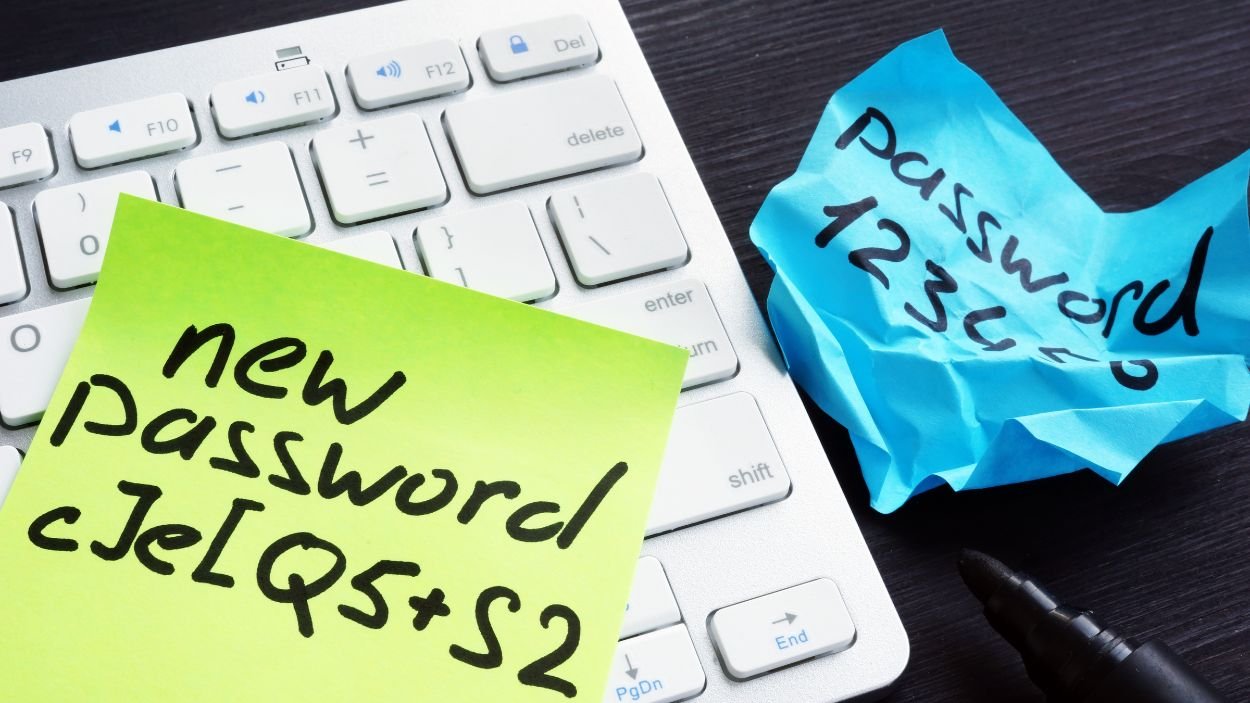 Del
F12
F11
F10
F9
delete
+
=
_
-
)
0
}
]
\
enter
O
shift
End
PgDn
new
password
c]e[Q5+S2
password
123456